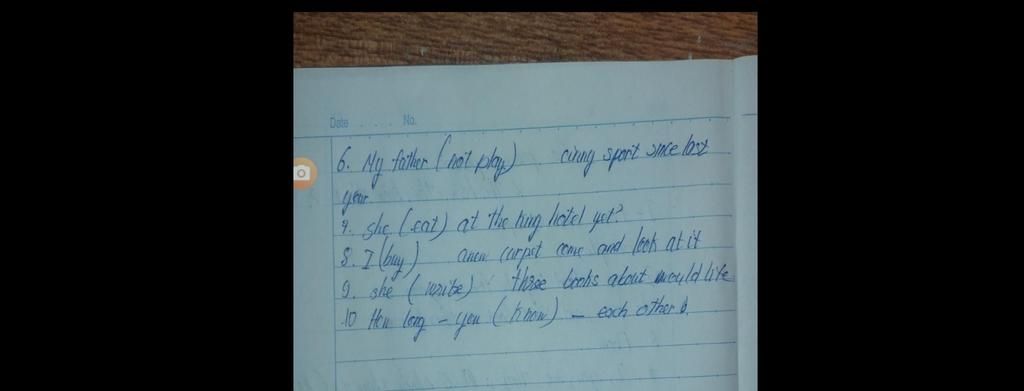 Date ..... No.
6. My father (not play) cinny sport since last
year
7. she (eat) at the king hotel yet?
8. I (buy) anew carpet come and look at it
9. she (write) three books about would life
10 How long - you (know) - each other